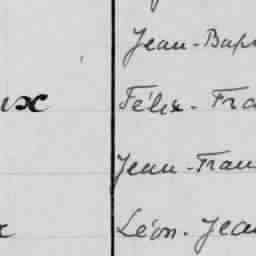 Jean-Bap
ux Félix-Fra
Jean-Fran
x Léon-Jea